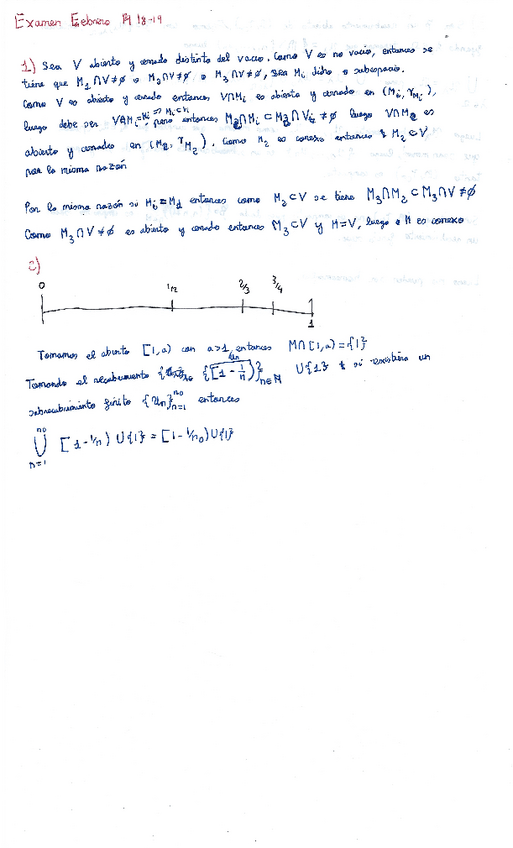 Examen Febrero 18-19
1) Sea V abierto y cerrado distinto del vacío. Como V es no vacío, entonces se
tiene que M₁∩V≠∅ o M₂∩V≠∅ o M₃∩V≠∅, sea Mᵢ dicho subespacio.
Como V es abierto y cerrado entonces V∩Mᵢ es abierto y cerrado en (Mᵢ, τ_Mᵢ),
luego debe ser V∩Mᵢ=Mᵢ ⇒ Mᵢ⊂V pero entonces M₂∩Mᵢ⊂M₂∩V≠∅ luego V∩M₂ es
abierto y cerrado en (M₂, τ_M₂). Como M₂ es conexo entonces M₂⊂V
por la misma razón
Por la misma razón si Mᵢ=M₁ entonces como M₂⊂V se tiene M₃∩M₂⊂M₃∩V≠∅
Como M₃∩V≠∅ es abierto y cerrado entonces M₃⊂V y M=V, luego M es conexo
2)
0 1/2 2/3 3/4 1
Tomamos el abierto [1,a) con a>1 entonces M∩[1,a)={1}
Tomando el recubrimiento {[1-1/n)}n∈ℕ ∪{1} si existiera un
subrecubrimiento finito {Uₙ}ₙ₌₁ⁿ⁰ entonces
n₀
⋃ [1-1/n) ∪{1} = [1-1/n₀)∪{1}
n=1